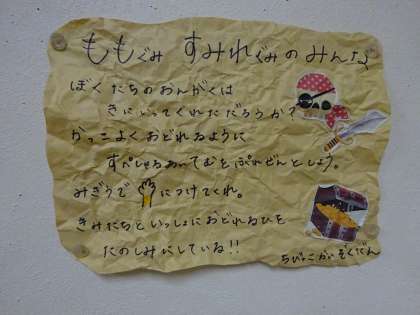 ももぐみ すみれぐみのみんな
ぼくたちのおんがくは
きにいってくれただろうか?
かっこよくおどれるように
すぺしゃるあいてむをぷれぜんとしよう。
みぎうで につけてくれ。
きみたちといっしょにおどれるひを
たのしみにしている!!
ちびっこかいぞくだん